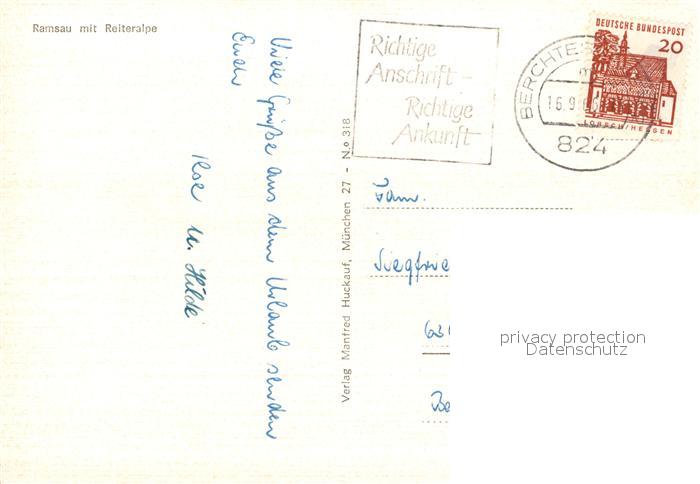 Ramsau mit Reiteralpe
Viele Grüße aus dem Urlaub senden
Euch
Ilse u. Hilde
Verlag Manfred Huckauf, München 27 - N.o 318
Richtige
Anschrift -
Richtige
Ankunft
BERCHTES
16.9.6
824
DEUTSCHE BUNDESPOST
20
LORSCH/HESSEN
Fam.
Siegfrie
631
Be
privacy protection
Datenschutz